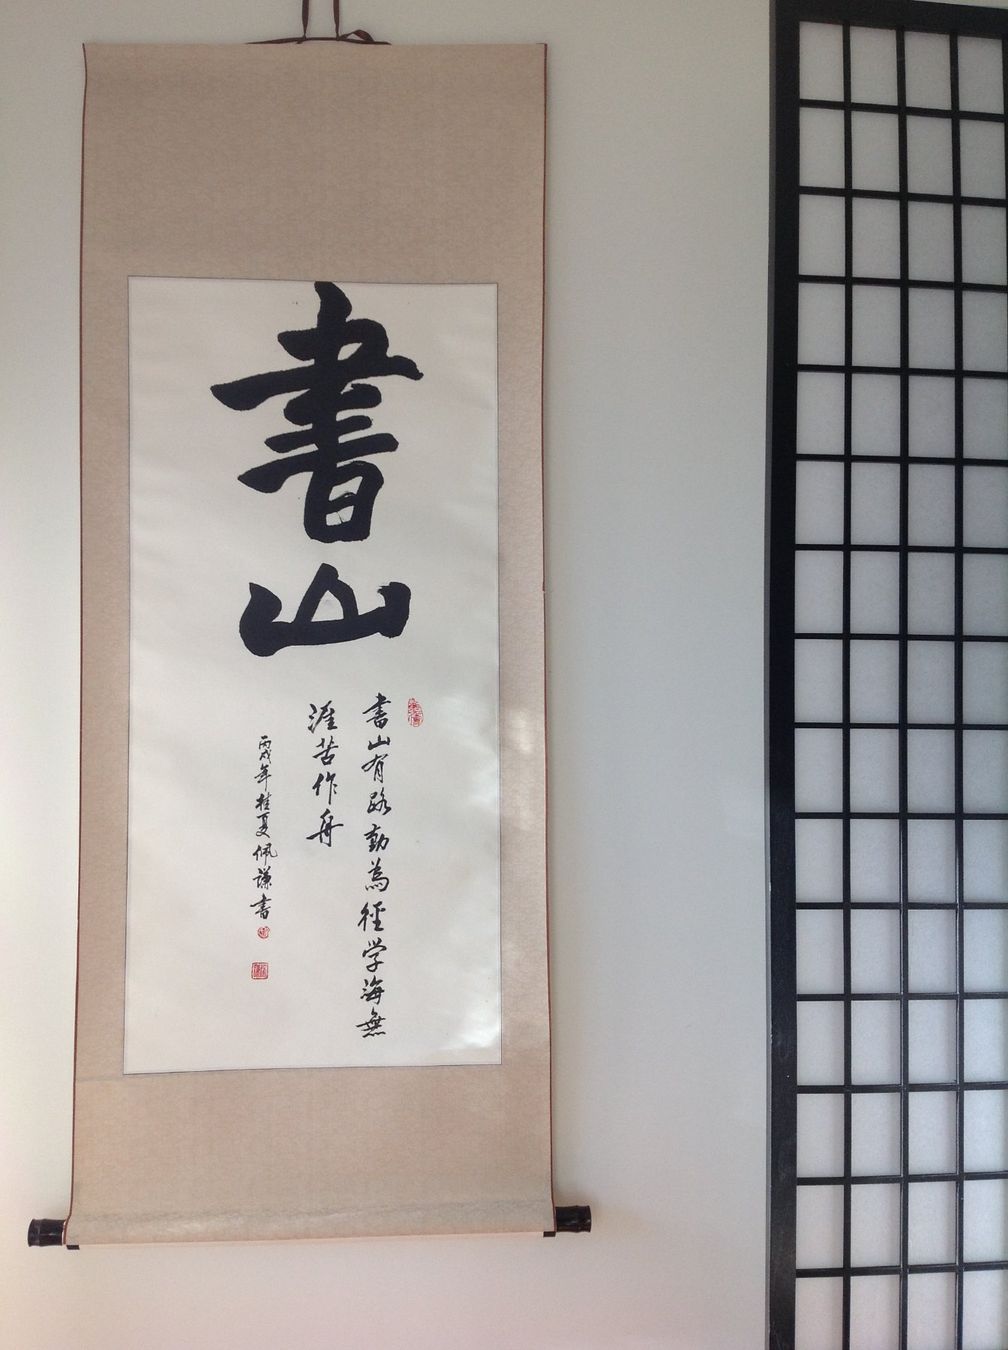 書山
書山有路勤為徑学海無
涯苦作舟
丙戌年桂夏佩謙書